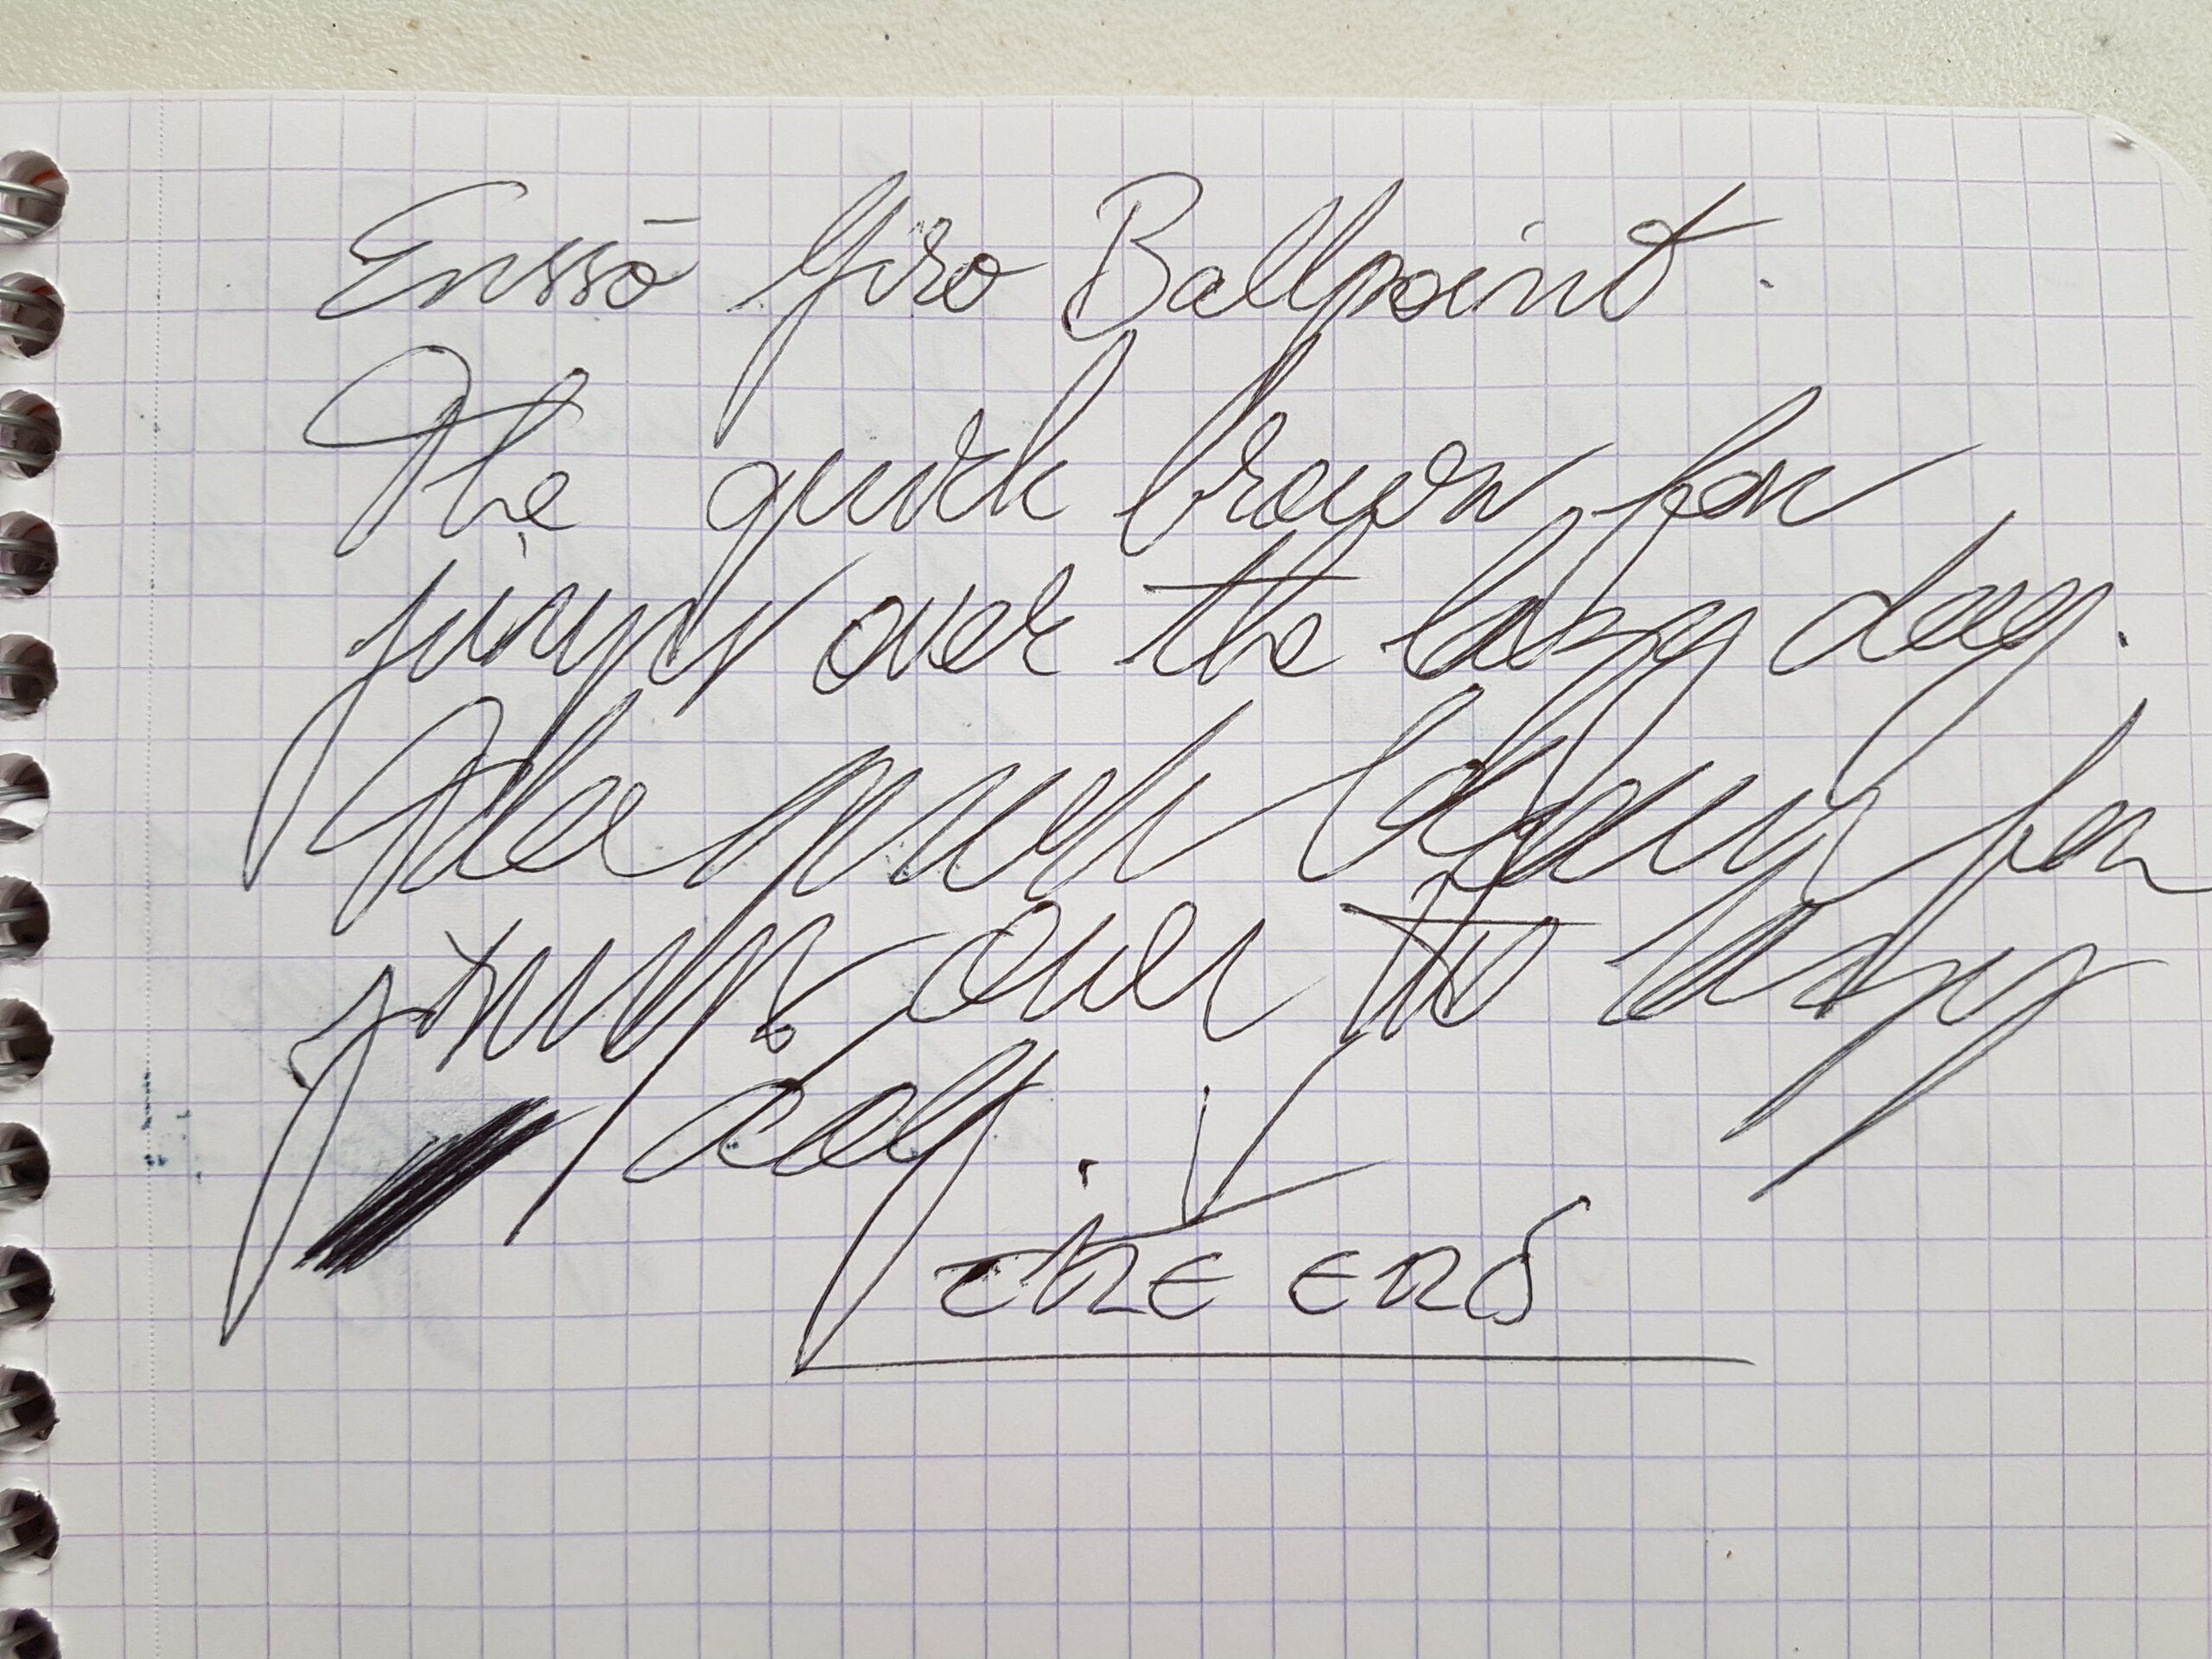 Enssō Giro Ballpoint.
The quick brown fox
jumps over the lazy dog.
The quick brown fox
jumps over the lazy
THE END